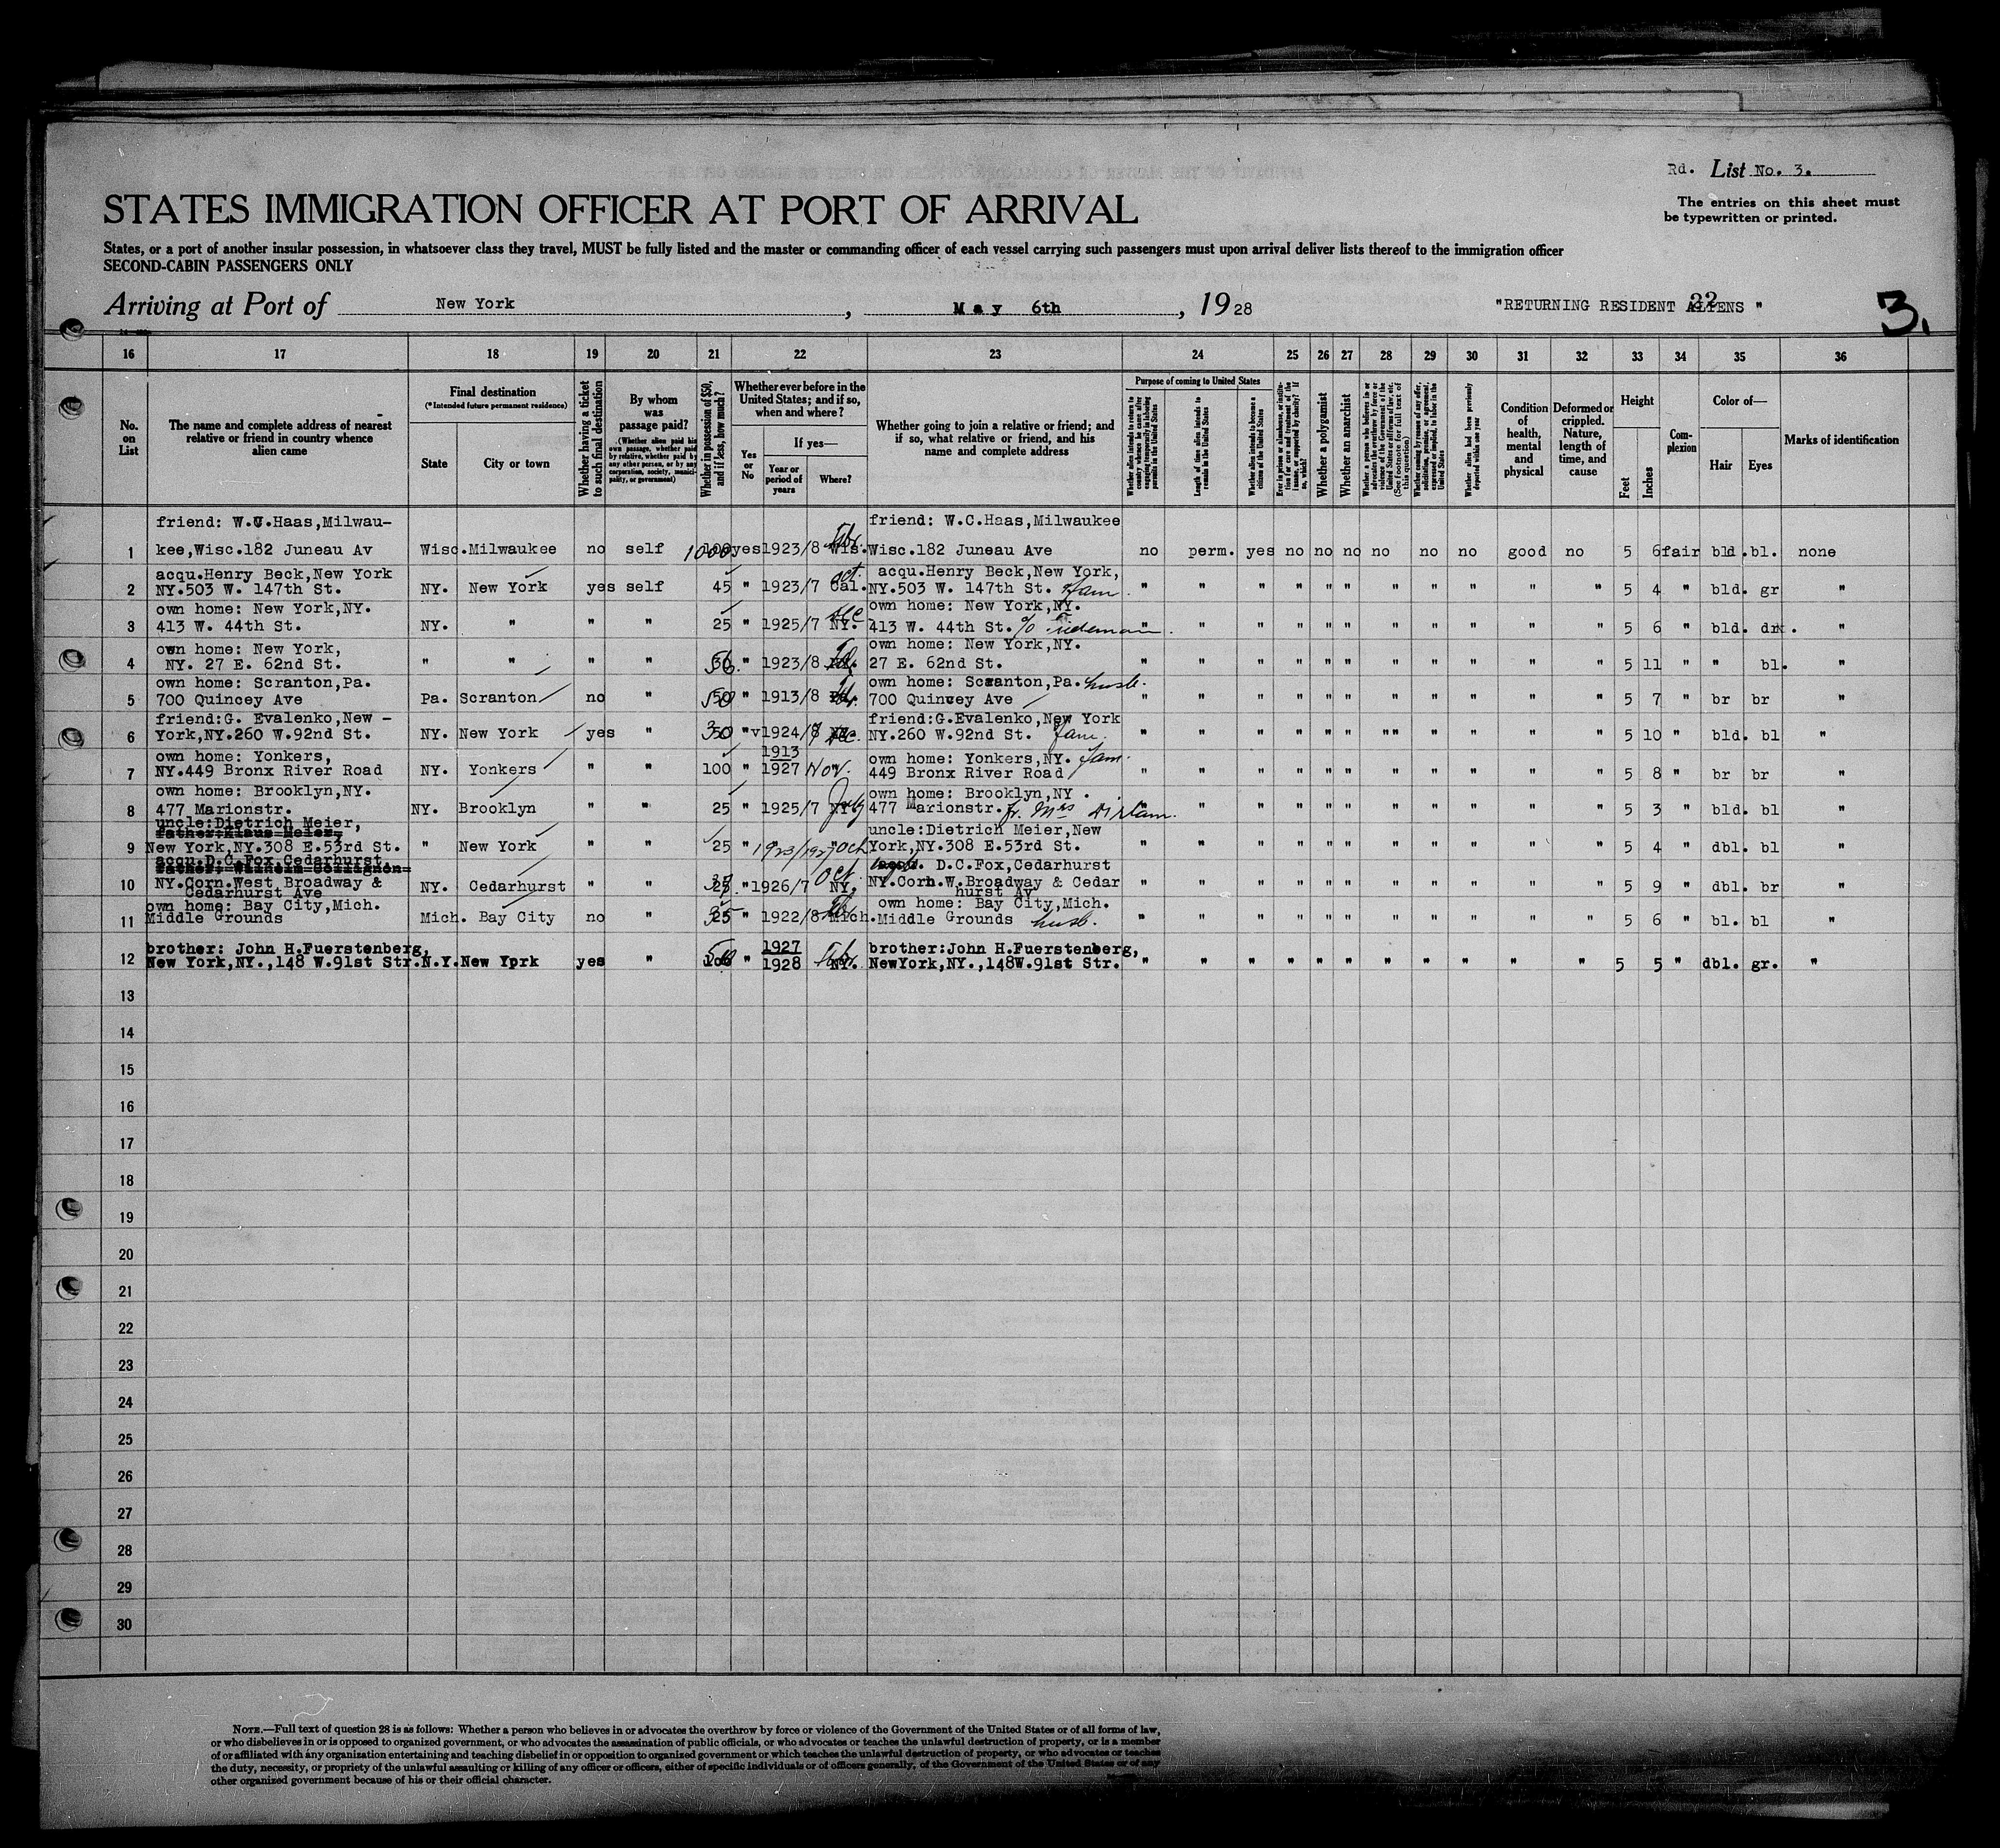 Rd. List No. 3.
STATES IMMIGRATION OFFICER AT PORT OF ARRIVAL
The entries on this sheet must
be typewritten or printed.
States, or a port of another insular possession, in whatsoever class they travel, MUST be fully listed and the master or commanding officer of each vessel carrying such passengers must upon arrival deliver lists thereof to the immigration officer
SECOND-CABIN PASSENGERS ONLY
Arriving at Port of New York, May 6th, 1928 "RETURNING RESIDENT ALIENS " 3.
16 17 18 19 20 21 22 23 24 25 26 27 28 29 30 31 32 33 34 35 36
No. on List
The name and complete address of nearest relative or friend in country whence alien came
Final destination
(*Intended future permanent residence)
State
City or town
Whether having a ticket to such final destination
By whom was passage paid?
(Whether alien paid his own passage, whether paid by relative, whether paid by any other person, or by any corporation, society, municipality, or government)
Whether in possession of $50, and if less, how much?
Whether ever before in the United States; and if so, when and where?
Yes or No
If yes—
Year or period of years
Where?
Whether going to join a relative or friend; and if so, what relative or friend, and his name and complete address
Purpose of coming to United States
Length of time alien intends to remain in the United States
Whether alien intends to become a citizen of the United States
Whether a polygamist
Whether an anarchist
Whether alien had been previously deported within one year
Condition of health, mental and physical
Deformed or crippled. Nature, length of time, and cause
Height
Feet
Inches
Complexion
Color of—
Hair
Eyes
Marks of identification
friend: W.C.Haas,Milwau- friend: W.C.Haas,Milwaukee
1 kee,Wisc.182 Juneau Av Wisc.Milwaukee no self 1000 yes 1923/8 Wis. Wisc.182 Juneau Ave no perm. yes no no no no no no good no 5 6 fair bld. bl. none
acqu.Henry Beck,New York acqu.Henry Beck,New York,
2 NY.503 W. 147th St. NY. New York yes self 45 " 1923/7 Cal. NY.503 W. 147th St. " " " " " " " " " " " 5 4 " bld. gr "
own home: New York,NY. own home: New York,NY.
3 413 W. 44th St. NY. " " " 25 " 1925/7 NY. 413 W. 44th St. " " " " " " " " " " " 5 6 " bld. "
own home: New York, own home: New York,NY.
4 NY. 27 E. 62nd St. " " " " " 1923/8 27 E. 62nd St. " " " " " " " " " " " 5 11 " " bl. "
own home: Scranton,Pa. own home: Scranton,Pa. husb.
5 700 Quincey Ave Pa. Scranton no " 50 " 1913/8 700 Quincey Ave " " " " " " " " " " " 5 7 " br br "
friend:G. Evalenko,New - friend:G.Evalenko,New York
6 York,NY.260 W.92nd St. NY. New York yes " " 1924/ NY.260 W.92nd St. " " " " " " "" " " " " 5 10 " bld. bl "
own home: Yonkers, 1913 own home: Yonkers,NY.
7 NY.449 Bronx River Road NY. Yonkers " " 100 " 1927 Nov. 449 Bronx River Road " " " " " " " " " " " 5 8 " br br "
own home: Brooklyn,NY. own home: Brooklyn,NY .
8 477 Marionstr. NY. Brooklyn " " 25 " 1925/7 July 477 Marionstr. fr. Mrs " " " " " " " " " " " 5 3 " bld. bl "
uncle:Dietrich Meier, uncle:Dietrich Meier,New
father:Klaus Meier
9 New York,NY.308 E.53rd St. " New York " " 25 " 1923/1927 Oct York,NY.308 E.53rd St. " " " " " " " " " " " 5 4 " dbl. bl "
acqu.D.C.Fox,Cedarhurst D.C.Fox,Cedarhurst
10 NY.Corn.West Broadway & NY. Cedarhurst " " " 1926/7 Oct. NY. NY.Corn.W.Broadway & Cedar " " " " " " " " " " " 5 9 " dbl. br "
Cedarhurst Ave hurst Av
own home: Bay City,Mich. own home: Bay City,Mich.
11 Middle Grounds Mich. Bay City no " " 1922/8 Mich. Middle Grounds husb. " " " " " " " " " " " 5 6 " bl. bl "
brother: John H.Fuerstenberg, 1927 brother:John H.Fuerstenberg,
12 New York,NY.,148 W.91st Str. N.Y. New Yprk yes " " 1928 NY. NewYork,NY.,148W.91st Str. " " " " " " " " " " " 5 5 " dbl. gr. "
13
14
15
16
17
18
19
20
21
22
23
24
25
26
27
28
29
30
NOTE.—Full text of question 28 is as follows: Whether a person who believes in or advocates the overthrow by force or violence of the Government of the United States or of all forms of law,
or who disbelieves in or is opposed to organized government, or who advocates the assassination of public officials, or who advocates or teaches the unlawful destruction of property, or is a member
of or affiliated with any organization entertaining and teaching disbelief in or opposition to organized government or which teaches the unlawful destruction of property, or who advocates or teaches
the duty, necessity, or propriety of the unlawful assaulting or killing of any officer or officers, either of specific individuals or of officers generally, of the Government of the United States or of any
other organized government because of his or their official character.